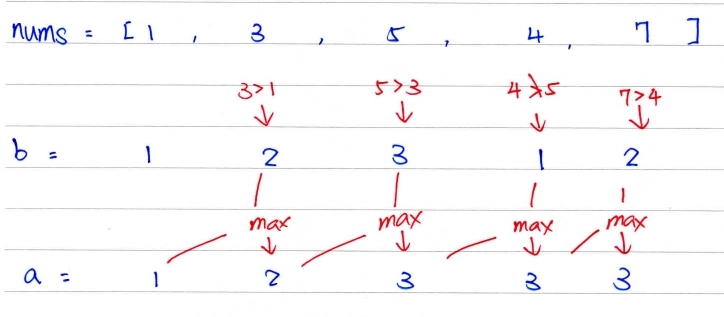 nums = [ 1 , 3 , 5 , 4 , 7 ]
3>1 5>3 4≯5 7>4
b = 1 2 3 1 2
max max max max
a = 1 2 3 3 3